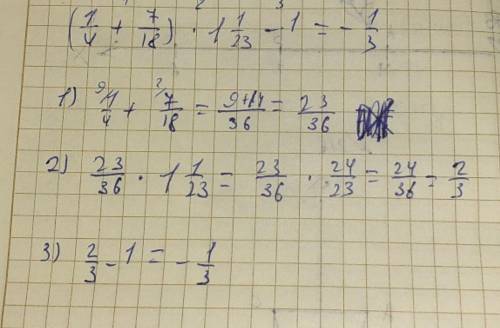 (1/4 + 7/18) · 1 1/23 - 1 = - 1/3
1) 1/4 + 7/18 = 9+14/36 = 23/36
2) 23/36 · 1 1/23 = 23/36 · 24/23 = 24/36 = 2/3
3) 2/3 - 1 = - 1/3